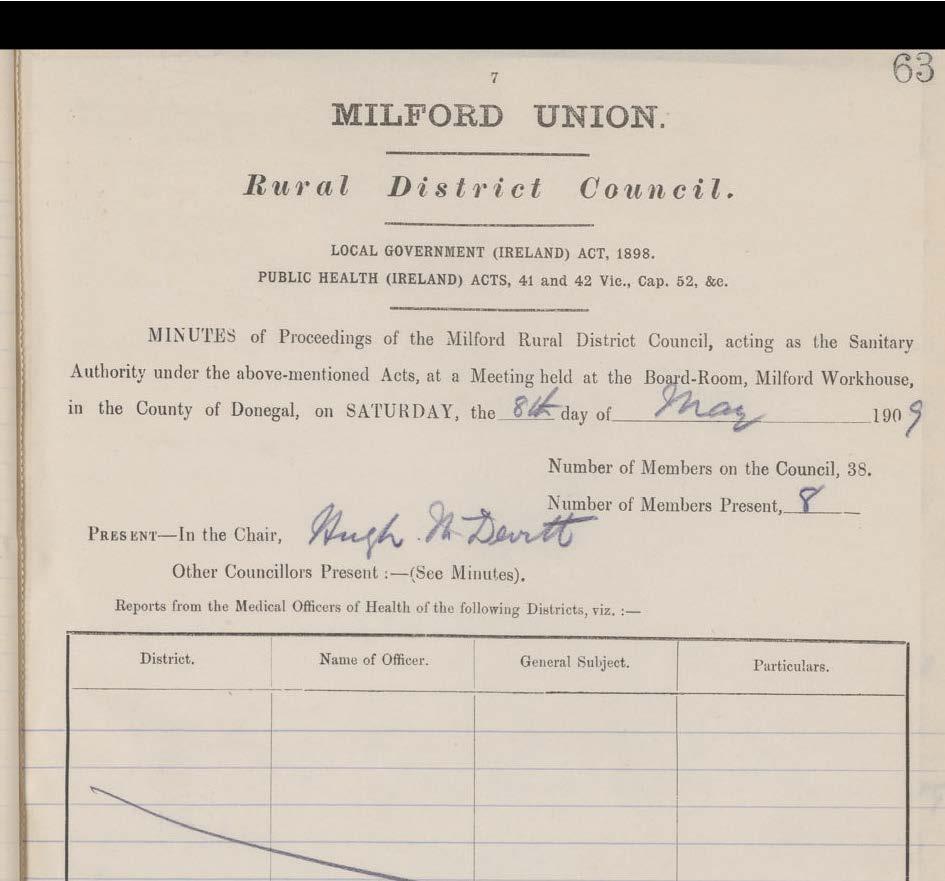 63
7
MILFORD UNION.
Rural District Council.
LOCAL GOVERNMENT (IRELAND) ACT, 1898.
PUBLIC HEALTH (IRELAND) ACTS, 41 and 42 Vic., Cap. 52, &c.
MINUTES of Proceedings of the Milford Rural District Council, acting as the Sanitary
Authority under the above-mentioned Acts, at a Meeting held at the Board-Room, Milford Workhouse,
in the County of Donegal, on SATURDAY, the 8th day of May 1909
Number of Members on the Council, 38.
Number of Members Present, 8
PRESENT—In the Chair, Hugh McDevitt
Other Councillors Present :—(See Minutes).
Reports from the Medical Officers of Health of the following Districts, viz. :—
District. Name of Officer. General Subject. Particulars.